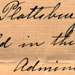 Plattsbu
ld in the
Admin